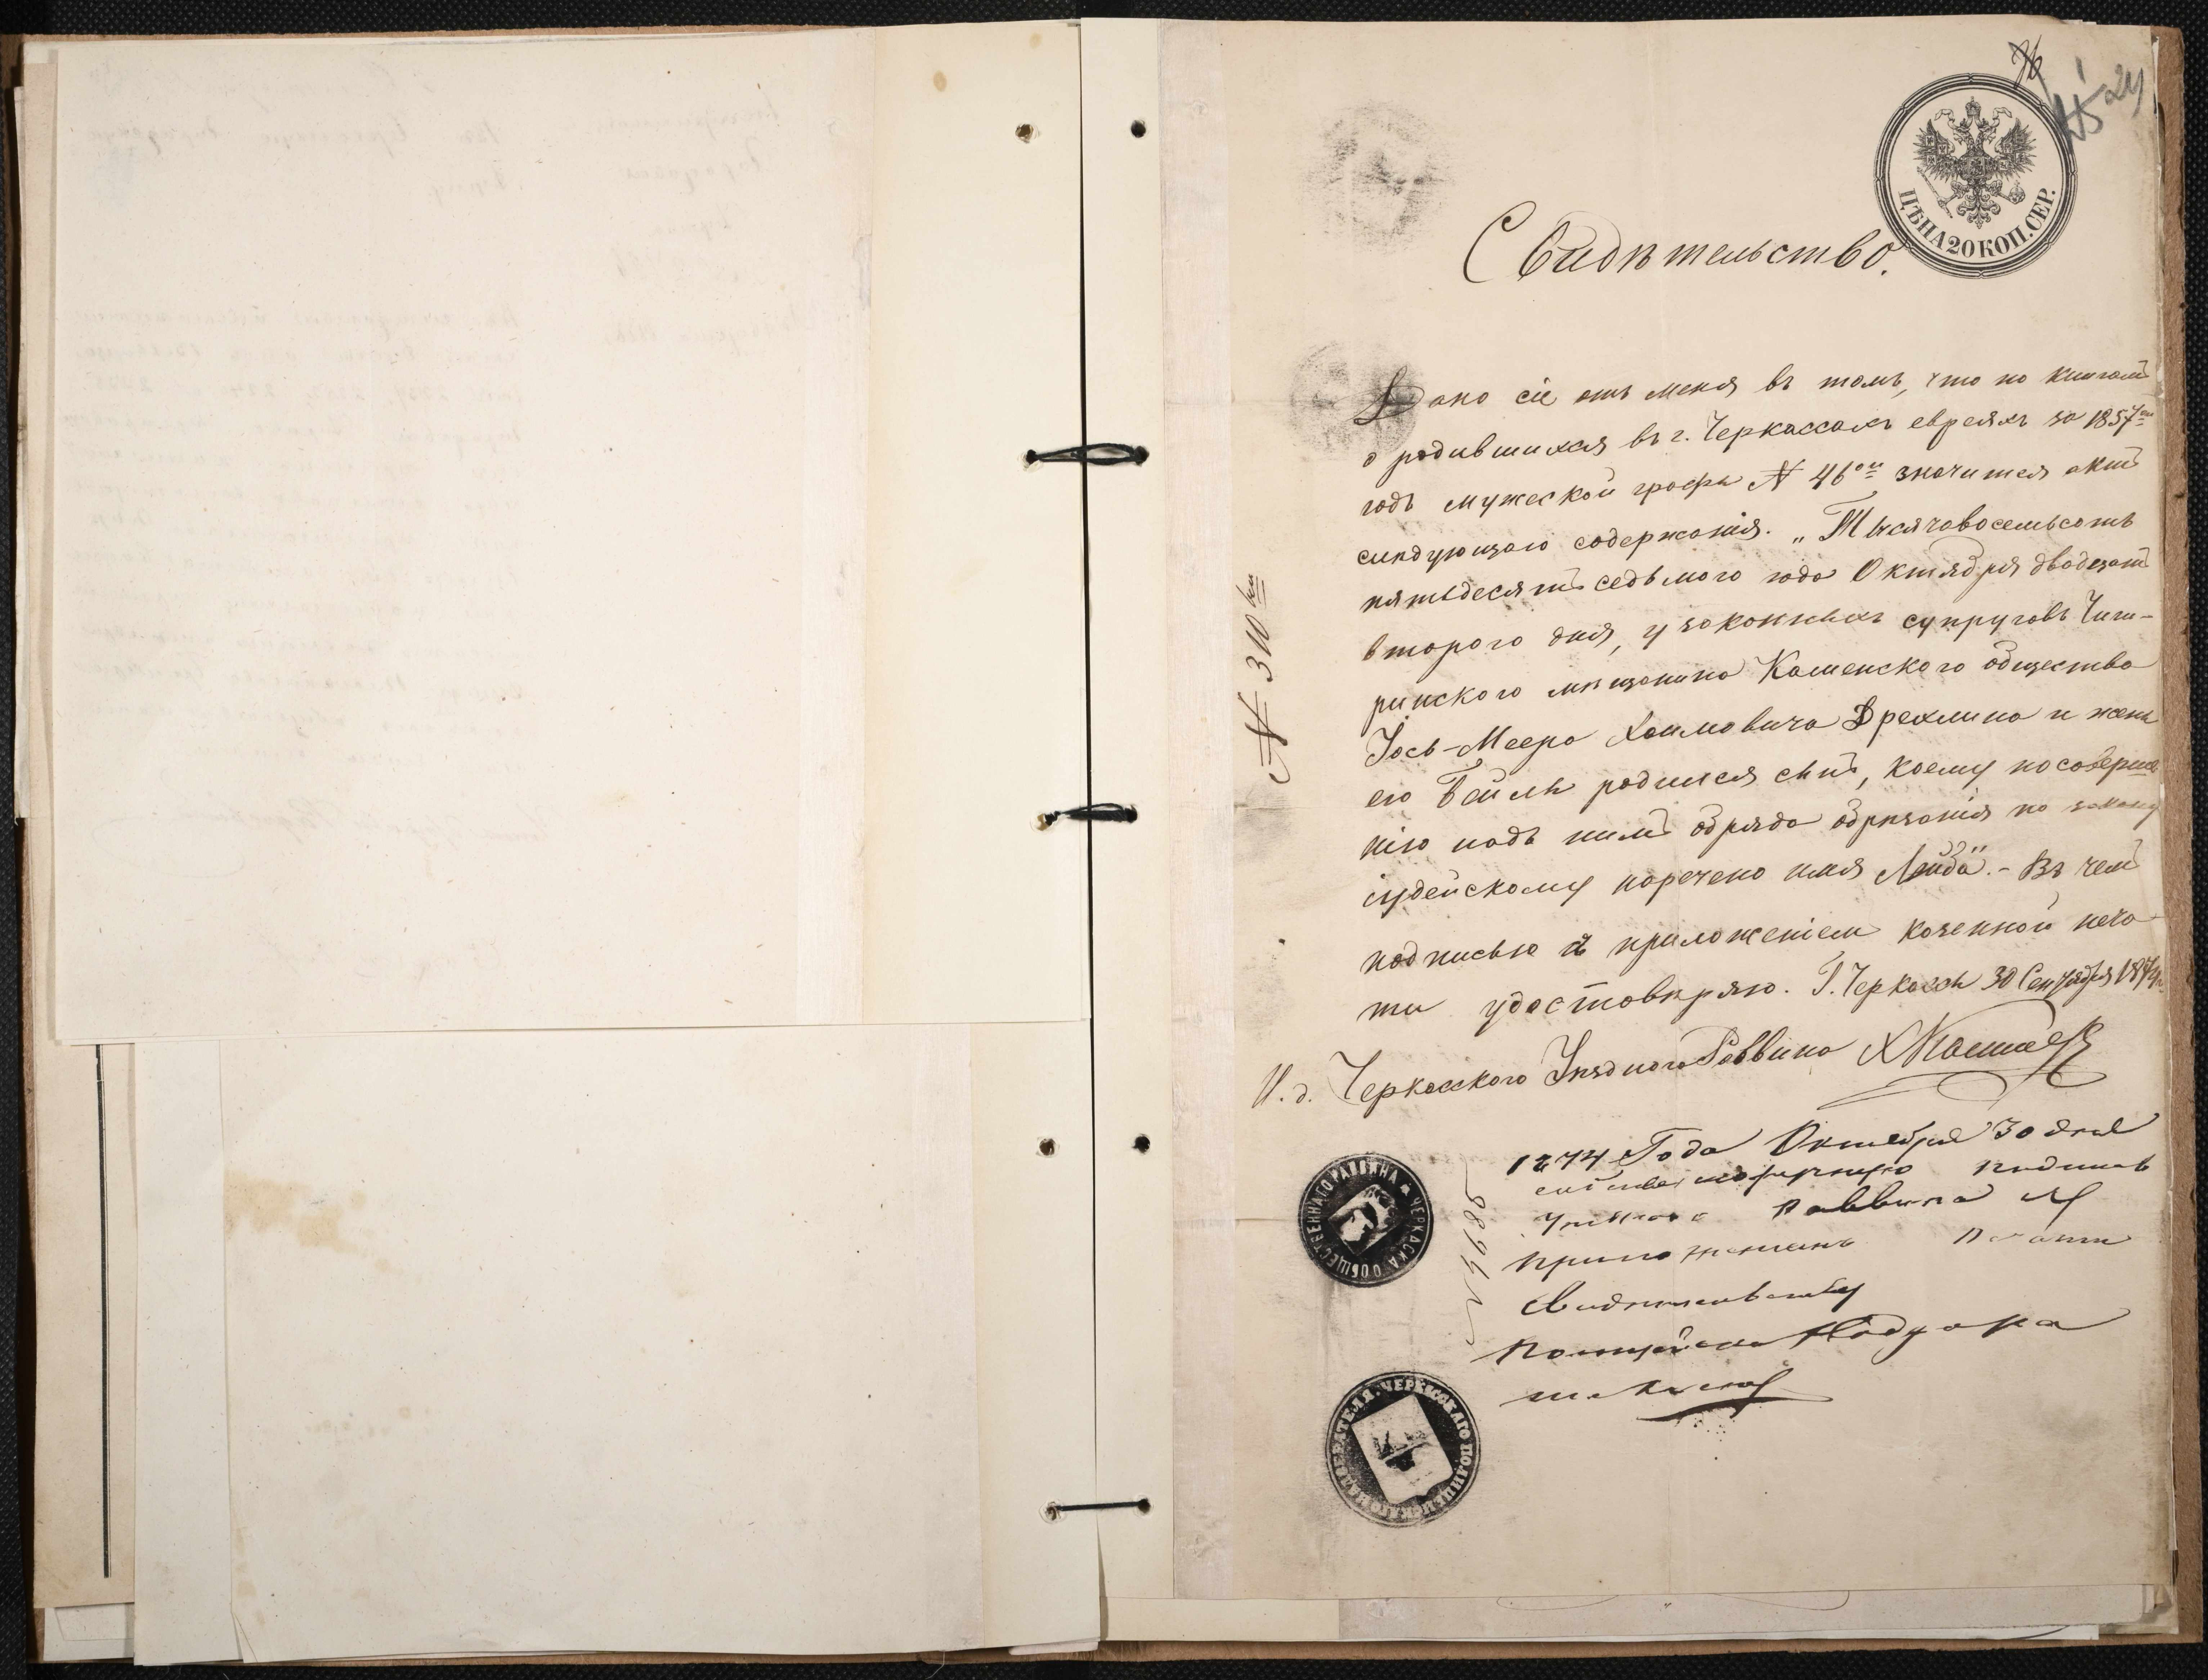 24
ЦѢНА 20 КОП. СЕР.
Свидѣтельство.
Дано сіе отъ меня въ томъ, что по книгамъ
о родившихся въ г. Черкассахъ евреяхъ за 1857ой
годъ мужеской графы № 46ой значится актъ
слѣдующаго содержанія. „Тысячавосемьсотъ
пятьдесятъ седьмого года Октября двадцать
второго дня, у законныхъ супруговъ Чиги-
ринского мѣщанина Каменского общества
Іось-Меера Хаимовича Дрехлина и жены
его Бейлы родился сынъ, коему по соверше
нію надъ нимъ обряда обрѣзанія по закону
іудейскому наречено имя Лейба". - Въ чемъ
подписью и приложеніем казенной печа-
ти удостовѣряю. Г. Черкассы 30 Сентября 1874г.
И. д. Черкасского Уѣздного Раввина
№ 310
1874 Года Октября 30 дня
подпись
Раввина и
приложеніемъ печати
Свидѣтельствую
Полицейскій Надзира
тель
ЧЕРКАСКА ОБЩЕСТВЕННАГО РАВВИНА
ЧЕРКАСКАГО ПОЛИЦЕЙСКАГО НАДЗИРАТЕЛЯ